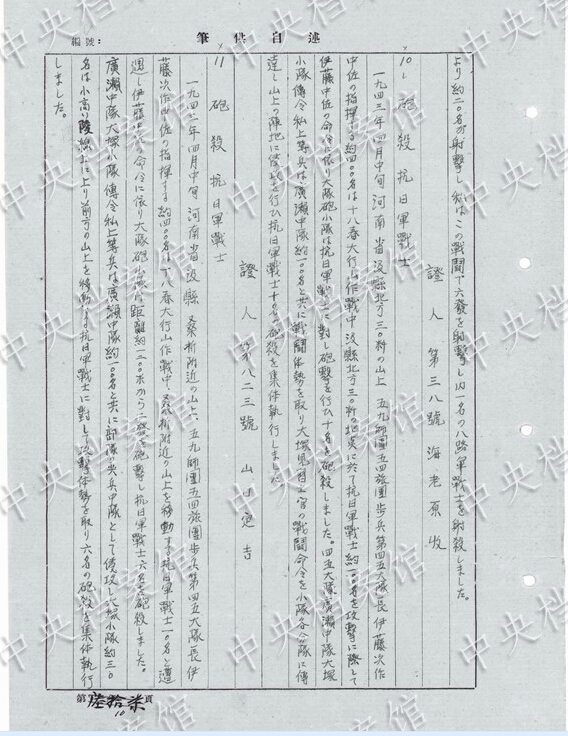 述自供筆
編號:
より約二〇名が射撃し私はこの戰闘で六發を射撃し内一名の八路軍戰士を射殺しました。
證人第三八號 海老原
10、砲殺 抗日軍戰士
一九四三年四月中旬 河南省 縣北方三〇粁の山上 五九師團五四旅團歩兵第四五大隊長伊藤次作
中佐の指揮する約四〇〇名は十八春大行山作戰中 縣北方三〇粁の地点に於て抗日軍戰士約一〇〇名を攻撃に際して
伊藤中佐の命令に依り大隊砲小隊は抗日軍戰士に對し砲撃を行ひ十名を砲殺しました。四五大隊廣瀬中隊大塚
小隊傳令私上等兵は廣瀬中隊約一〇〇名と共に戰闘体勢を取り大塚見習士官の戰闘命令を小隊各分隊に傳
達し山上の陣地に侵攻を行ひ抗日軍戰士十名の砲殺を集体執行しました
證人第八二三號 山田 吉
11、砲殺 抗日軍戰士
一九四三年四月中旬 河南省 縣 附近の山上、五九師團五四旅團歩兵第四五大隊長伊
藤次作中佐の指揮する約四〇〇名は十八春大行山作戰中、附近の山上を移動する抗日軍戰士一〇〇名と遭
遇し伊藤中佐の命令に依り大隊砲小隊は距離約一二〇〇米から二發を砲撃し抗日軍戰士六名を砲殺しました。
廣瀬中隊大塚小隊傳令私上等兵は廣瀬中隊約一〇〇名と共に部隊 尖兵中隊として侵攻し大塚小隊約三〇
名は小高い 線上により前方の山上を移動する抗日軍戰士に對して攻撃体勢を取り六名の砲殺を集体執行
しました。
第陸拾柒頁
10
中央档案馆